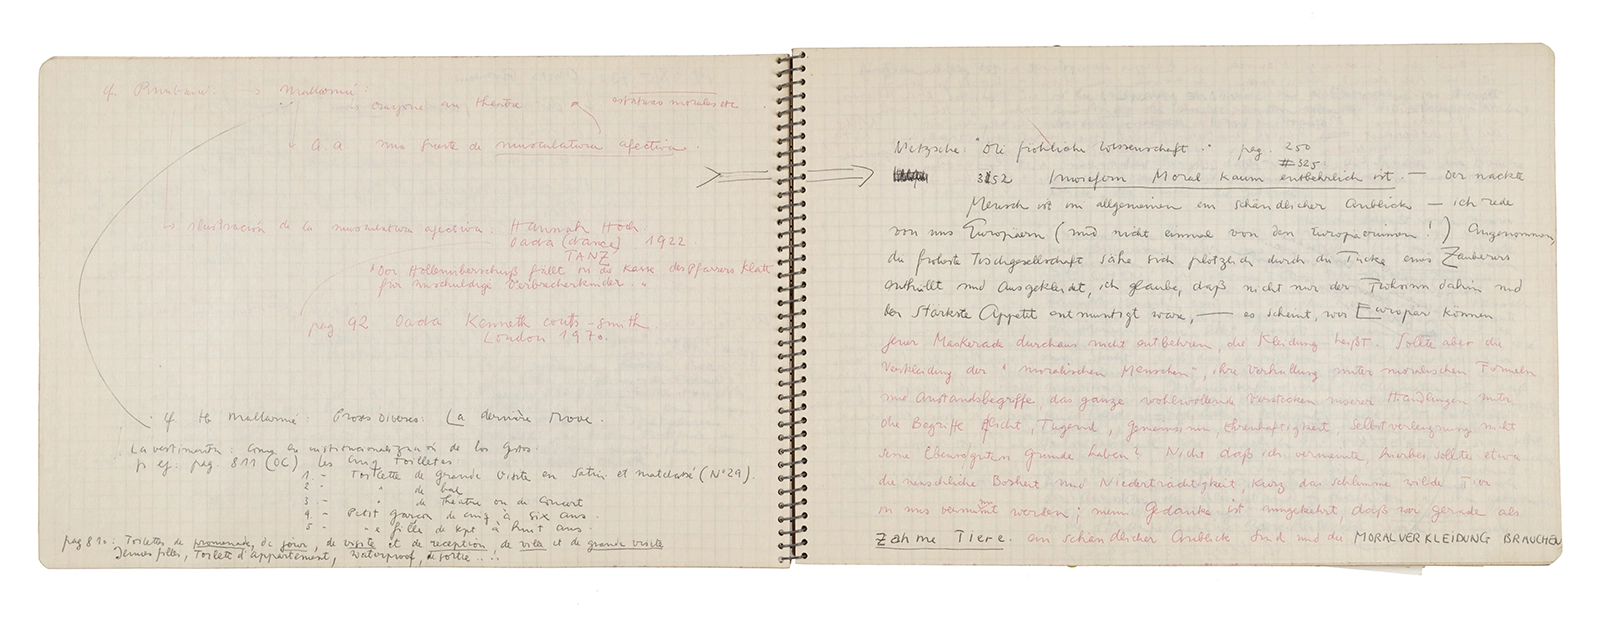 cf. Rimbaud: → Mallarmé:
crayonné au théâtre
estatuas morales etc
A.A una suerte de musculatura afectiva.
→ ilustración de la musculatura afectiva: Hannah Höch
Dada (dance) 1922.
TANZ
"Der Höllenüberschuß fällt in die Kasse des Pfarrers Klatt
für unschuldige Verbrecherkinder."
pag 92 Dada Kenneth Coutts-Smith.
London 1970.
cf Mallarmé: Proses Diverses: La dernière Mode.
La vestimenta: como la institucionalización de los Gestos.
p. ej. pag. 811 (OC) Les Cinq Toilettes:
1.- Toilette de grande visite en satin et matelassé (Nº 29).
2.- " de bal
3.- " de Théatre ou de Concert
4.- Petit garçon de cinq à six ans.
5.- " e fille de sept à huit ans.
pag 810: Toilettes de promenade, de jour, de visite et de reception de ville et de grande visite
Jeunes filles, Toilette d'appartement, Waterproof, de sortie...!.
Nietzsche: "Die fröhliche Wissenschaft." pag. 250
#325.
352 Inwiefern Moral kaum entbehrlich ist. — Der nackte
Mensch ist im allgemeinen ein schändlicher Anblick — ich rede
von uns Europäern (und nicht einmal von den Europäerinnen!) Angenommen,
die froheste Tischgesellschaft sähe sich plötzlich durch die Tücke eines Zauberers
enthüllt und ausgekleidet, ich glaube, daß nicht nur der Frohsinn dahin und
der stärkste Appetit entmuntigt wäre, — es scheint, wir Europäer können
jener Maskerade durchaus nicht entbehren, die Kleidung heißt. Sollte aber die
Verkleidung der "moralischen Menschen", ihre Verhüllung unter moralischen Formeln
und Anstandsbegriffe, das ganze wohlwollende Verstecken unserer Handlungen unter
die Begriffe Pflicht, Tugend, Gemeinsinn Ehrenhaftigkeit, Selbstverleugnung nicht
seine Ebensoguten Gründe haben? Nicht daß ich vermeinte, hierbei sollte etwa
die menschliche Bosheit und Niederträchtigkeit, kurz das schlimme wilde Tier
in uns vermummt werden; mein Gedanke ist umgekehrt, daß wir gerade als
Zahme Tiere. ein schändlicher Anblick sind und die MORALVERKLEIDUNG BRAUCHEN